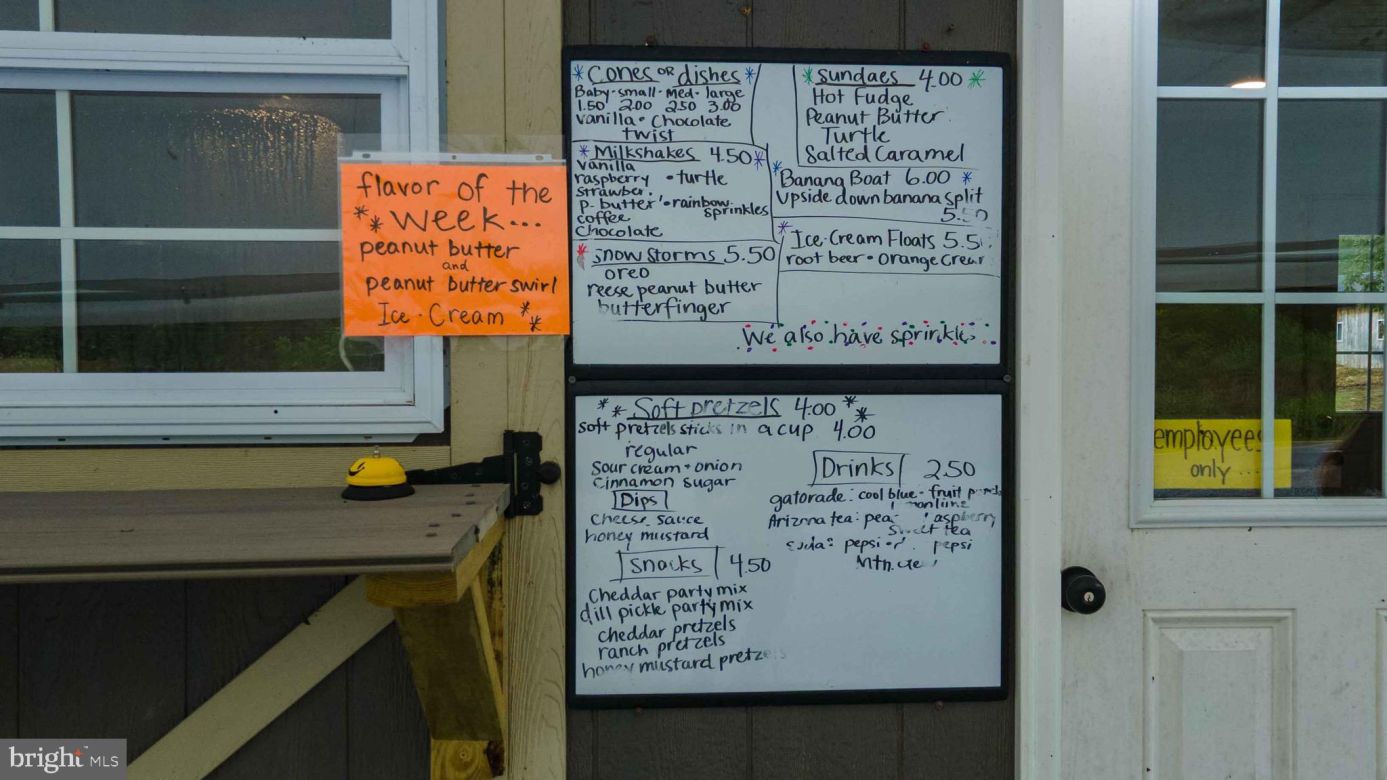 flavor of the
WEEK...
peanut butter
and
peanut butter swirl
Ice-Cream
Cones or dishes
Baby-small-Med-large
1.50 2.00 2.50 3.00
vanilla • Chocolate
twist
Milkshakes 4.50
vanilla
raspberry • turtle
strawber.
p. butter • rainbow
sprinkles
coffee
Chocolate
snow storms 5.50
oreo
reese peanut butter
butterfinger
sundaes 4.00
Hot Fudge
Peanut Butter
Turtle
Salted Caramel
Banana Boat 6.00
Upside down banana split
5.50
Ice-Cream Floats 5.5
root beer • orange
We also have sprinkles
Soft pretzels 4.00
soft pretzels sticks in a cup 4.00
regular
sour cream + onion
cinnamon sugar
Dips
Cheese sauce
honey mustard
Snacks 4.50
Cheddar party mix
dill pickle party mix
cheddar pretzels
ranch pretzels
honey mustard
Drinks 2.50
gatorade: cool blue - fruit
Arizona tea:
sweet tea
pepsi pepsi
Mtn.
employees
only...
bright MLS